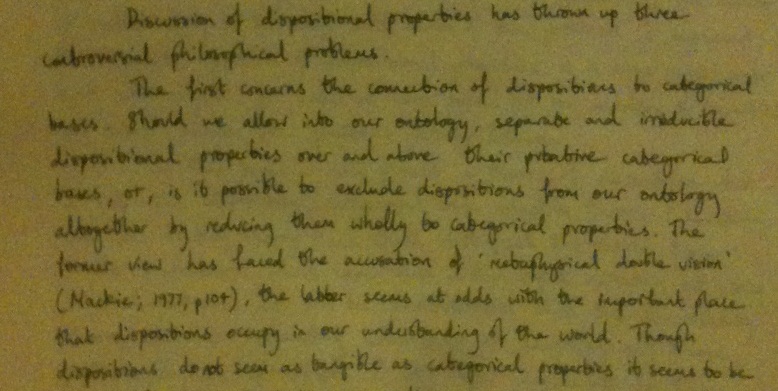 Discussion of dispositional properties has thrown up three
controversial philosophical problems.
The first concerns the connection of dispositions to categorical
bases. Should we allow into our ontology, separate and irreducible
dispositional properties over and above their putative categorical
bases, or, is it possible to exclude dispositions from our ontology
altogether by reducing them wholly to categorical properties. The
former view has faced the accusation of 'metaphysical double vision'
(Mackie; 1977, p104), the latter seems at odds with the important place
that dispositions occupy in our understanding of the world. Though
dispositions do not seem as tangible as categorical properties it seems to be